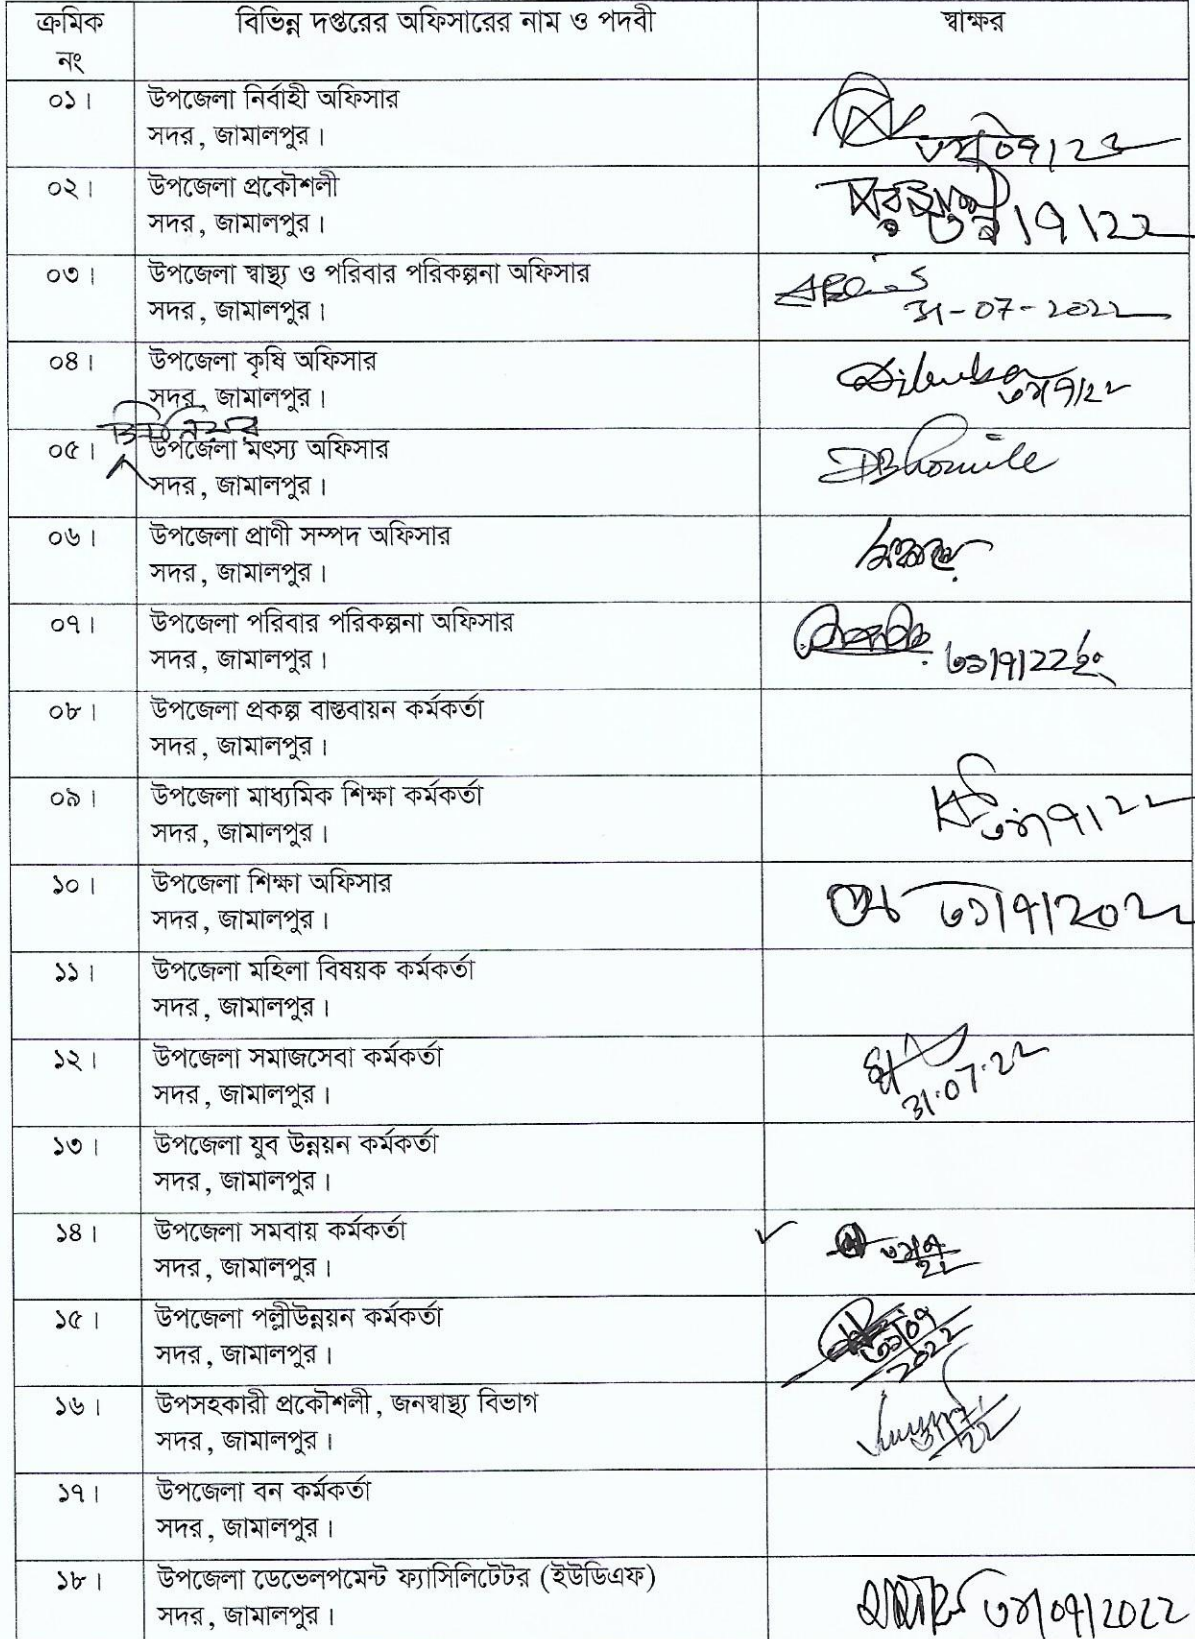 ক্রমিক নং বিভিন্ন দপ্তরের অফিসারের নাম ও পদবী স্বাক্ষর
০১। উপজেলা নির্বাহী অফিসার
সদর, জামালপুর।
০২। উপজেলা প্রকৌশলী
সদর, জামালপুর।
০৩। উপজেলা স্বাস্থ্য ও পরিবার পরিকল্পনা অফিসার
সদর, জামালপুর।
31-07-2022
০৪। উপজেলা কৃষি অফিসার
সদর, জামালপুর।
সিনিয়র
০৫। উপজেলা মৎস্য অফিসার
সদর, জামালপুর।
০৬। উপজেলা প্রাণী সম্পদ অফিসার
সদর, জামালপুর।
০৭। উপজেলা পরিবার পরিকল্পনা অফিসার
সদর, জামালপুর।
৩১/৭/22ইং
০৮। উপজেলা প্রকল্প বাস্তবায়ন কর্মকর্তা
সদর, জামালপুর।
০৯। উপজেলা মাধ্যমিক শিক্ষা কর্মকর্তা
সদর, জামালপুর।
১০। উপজেলা শিক্ষা অফিসার
সদর, জামালপুর।
৩১/৭/2022
১১। উপজেলা মহিলা বিষয়ক কর্মকর্তা
সদর, জামালপুর।
১২। উপজেলা সমাজসেবা কর্মকর্তা
সদর, জামালপুর।
31.07.22
১৩। উপজেলা যুব উন্নয়ন কর্মকর্তা
সদর, জামালপুর।
১৪। উপজেলা সমবায় কর্মকর্তা
সদর, জামালপুর।
১৫। উপজেলা পল্লীউন্নয়ন কর্মকর্তা
সদর, জামালপুর।
১৬। উপসহকারী প্রকৌশলী, জনস্বাস্থ্য বিভাগ
সদর, জামালপুর।
১৭। উপজেলা বন কর্মকর্তা
সদর, জামালপুর।
১৮। উপজেলা ডেভেলপমেন্ট ফ্যাসিলিটেটর (ইউডিএফ)
সদর, জামালপুর।
৩১/০৭/2022